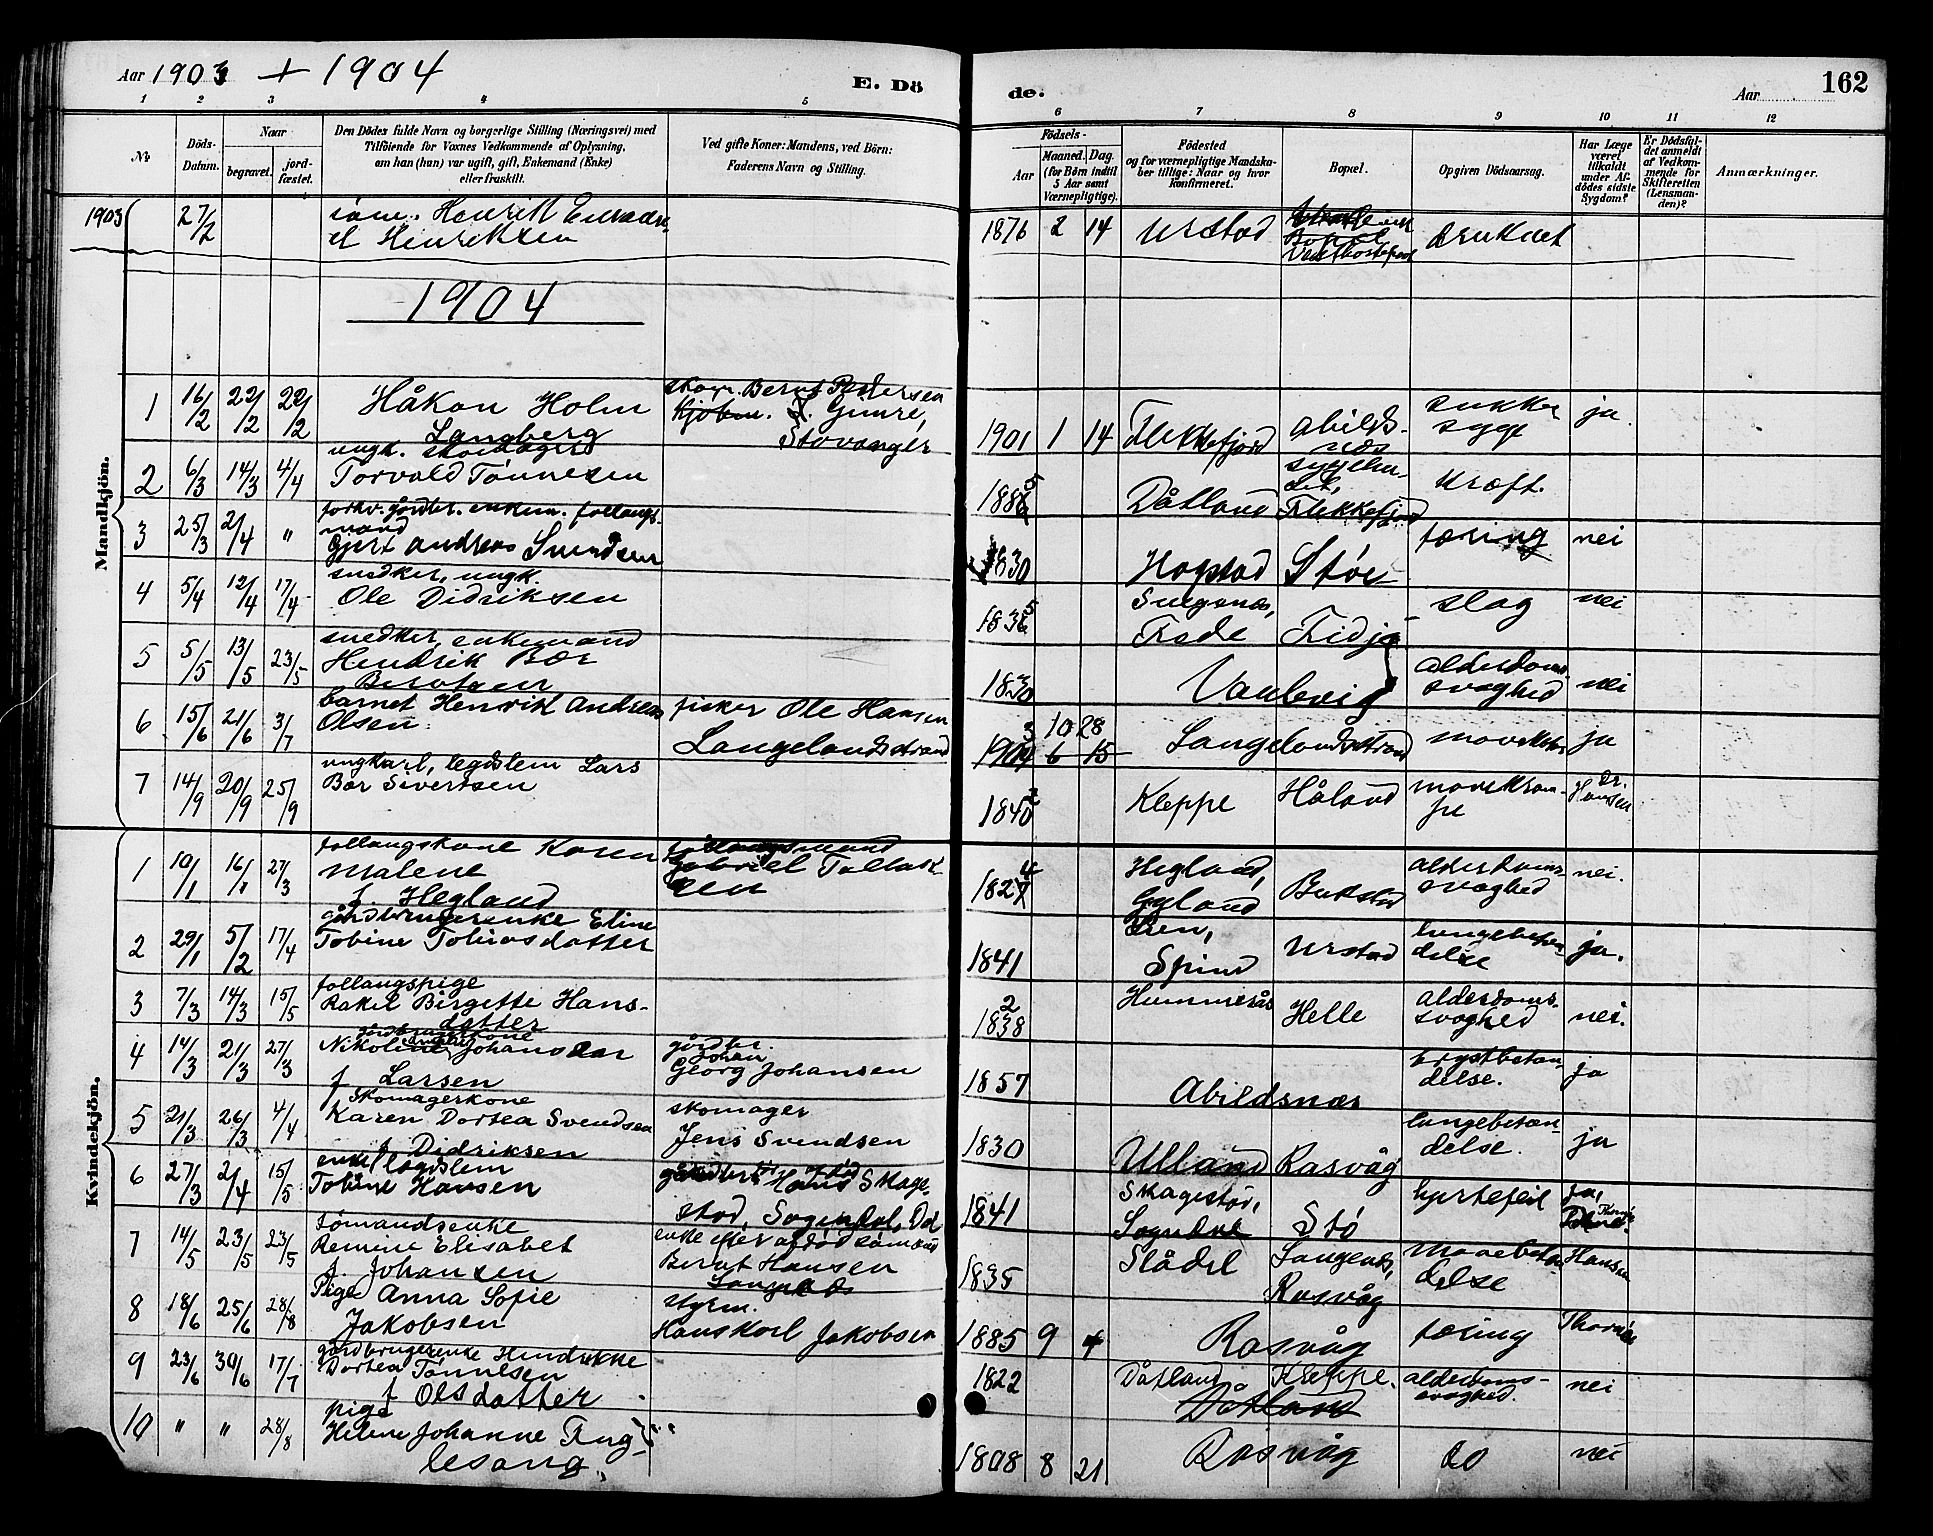 Aar 1903 + 1904
E. Dö
de.
Aar
162
1 2 3 4 5 6 7 8 9 10 11 12
No
Döds-
Datum.
Naar
begravet.
jord-
fæstet.
Den Dödes fulde Navn og borgerlige Stilling (Næringsvei) med
Tilföiende for Voxnes Vedkommende af Oplysning,
om han (hun) var ugift, gift, Enkemand (Enke)
eller fraskilt.
Ved gifte Koner: Mandens, ved Börn:
Faderens Navn og Stilling.
Födsels-
Aar
Maaned.
Dag.
(for Börn indtil
5 Aar samt
Værnepligtige).
Födested
og for værnepligtige Mandska-
ber tillige: Naar og hvor
konfirmeret.
Bopæl.
Opgiven Dödsaarsag.
Har Læge
været
tilkaldt
under Af-
dödes sidste
Sygdom?
Er Dödsfal-
det anmeldt
af Vedkom-
mende for
Skifteretten
(Lensman-
den)?
Anmærkninger.
Mandkjön.
1903 27/2 søm. Henrik
Henriksen
1876 2 14 Urstad druknet
1904
1 16/2 22/2 22/2 Håkon Holm
Langberg
Bernt Pedersen
Stavanger
1901 1 14 Flekkefjord Abilds-
næs
sukker
syge
ja.
2 6/3 14/3 4/4 ungk.
Torvald Tønnesen
1885 Dåtland
Flekkefjord
kræft.
3 25/3 2/4 " forhv. gårdbr. enkem. follaugs-
mand
Gjert Andreas Svendsen
1830 Hogstad Støe tæring nei
4 5/4 12/4 17/4 snedker, ungk.
Ole Didriksen
1835
Fede Fidje slag nei
5 5/5 13/5 23/5 snedker, enkemand
Hendrik Bær
Berntsen
1830 alderdoms-
svaghed
nei
6 15/6 21/6 3/7 barnet Henrik Andreas
Olsen
fisker Ole Hansen
Langelandsstrand
1903 10 28
6 15
Langelandsstrand ja
7 14/9 20/9 25/9 ungkarl, legdslem Lars
Bær Sivertsen
1840 Kleppe Håland mavekram-
pe
Dr.
Hansen
Kvindekjön.
1 10/1 16/1 27/3 follaugskone Karen
Malene
f. Hegland
follaugsmand
Gabriel Tollak
sen
1824 Hegland,
Gyland
Bukstad alderdoms-
svaghed
nei.
2 29/1 5/2 17/4 gårdbrugerenke Eline
Tobine Tobiasdatter
1841
Spind
Urstad lungebetæn-
delse
ja.
3 7/3 14/3 15/5 follaugspige
Rakel Birgitte Hans-
datter
1832 Hummerås Helle alderdoms-
svaghed
nei.
4 14/3 21/3 27/3 gårdbrugerkone
Nikoline Johansen
f. Larsen
gårdbr.
Johan
Georg Johansen
1857 Abildsnæs brystbetæn-
delse.
ja
5 21/3 26/3 4/4 Skomagerkone
Karen Dortea Svendsen
f. Didriksen
skomager
Jens Svendsen
1830 Ulland Rasvåg lungebetæn-
delse.
ja
6 27/3 2/4 15/5 enke, legdslem
Tobine Hansen
Hans Skage-
stad, Sogndal, Dal
1841 Skagestad,
Sogndal
Stø hjertefeil ja,
7 14/5 23/5 23/5 sømandsenke
Remine Elisabet
f. Johansen
enke efter afdød sømand
Bernt Hansen
1835 Slådel
Rasvåg
mavebetæn
delse
Hansen
8 18/6 25/6 28/8 Pige Anna Sofie
Jakobsen
styrm.
Hans Karl Jakobsen
1885 9 4 Rasvåg tæring
9 23/6 30/6 17/7 gårdbrugerenke Hendrikke
Dortea Tønnesen
f. Olsdatter
1822 Dåtland Kleppe.
Dåtland
alderdoms-
svaghed.
nei
10 " " 28/8 pige
Helene Johanne Fug-
lesang.
1808 8 21 Rasvåg do nei